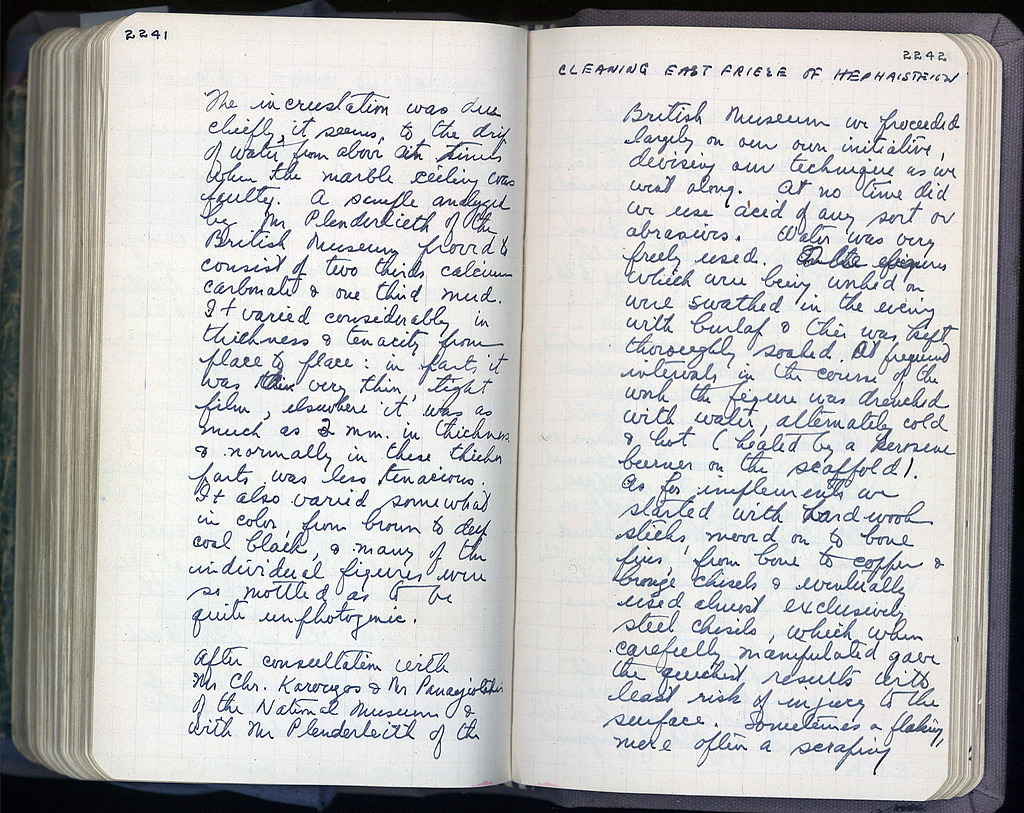 2241
The incrustation was due
chiefly, it seems, to the drip
of water from above at times
when the marble ceiling was
faulty. A sample analyzed
by Mr Plenderleith of the
British Museum proved to
consist of two thirds calcium
carbonate & one third mud.
It varied considerably in
thickness & tenacity from
place to place: in parts it
was very thin, tight
film, elsewhere it was as
much as 2 mm. in thickness
& normally in these thicker
parts was less tenacious.
It also varied somewhat
in color, from brown to deep
coal black, & many of the
individual figures were
so mottled as to be
quite unphotogenic.
After consultation with
Mr Chr. Karouzos & Mr Panagiotakis
of the National Museum &
with Mr Plenderleith of the
2242
CLEANING EAST FRIEZE OF HEPHAISTEION
British Museum we proceeded
largely on our own initiative,
devising our technique as we
went along. At no time did
we use acid of any sort or
abrasives. Water was very
freely used. figures
which were being worked on
were swathed in the evening
with burlap & this was kept
thoroughly soaked. At frequent
intervals in the course of the
work the figure was drenched
with water, alternately cold
& hot (heated by a kerosene
burner on the scaffold).
As for implements we
started with hard wood
sticks, moved on to bone
pins, from bone to copper &
bronze chisels & eventually
used almost exclusively
steel chisels, which when
carefully manipulated gave
the quickest results with
least risk of injury to the
surface. Sometimes a flaking,
more often a scraping